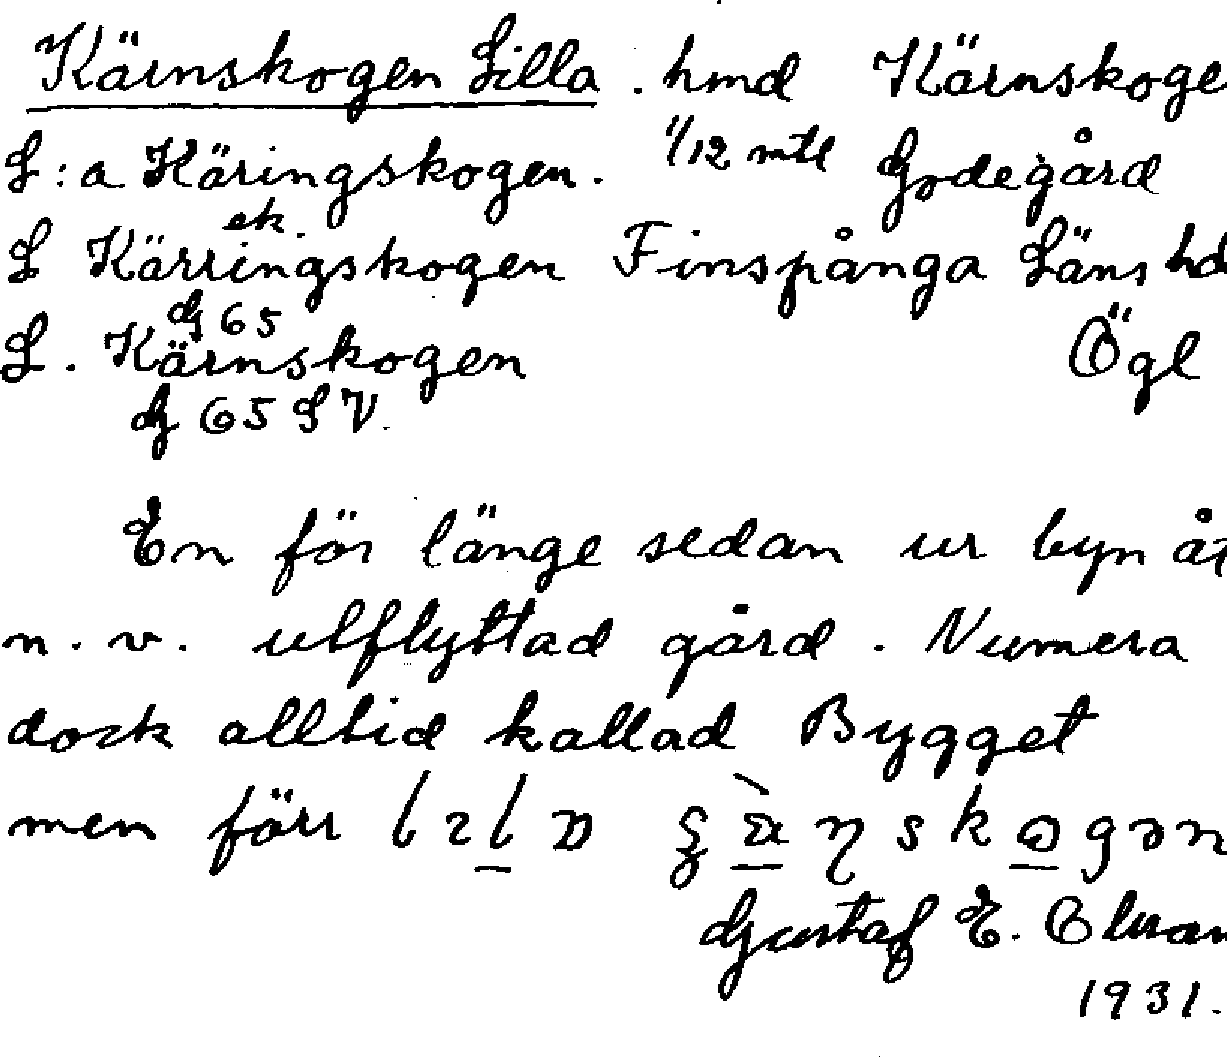 Kärnskogen Lilla . hmd Kärnskoge
L:a Käringskogen. 1/12 mtl Godegård
ek.
L Kärringskogen Finspånga Läns hd
G 65
L. Kärnskogen Ögl
G 65 S V.
En för länge sedan ur byn åt
n. v. utflyttad gård. Numera
dock alltid kallad Bygget
men förr
Gustaf E.
1931.